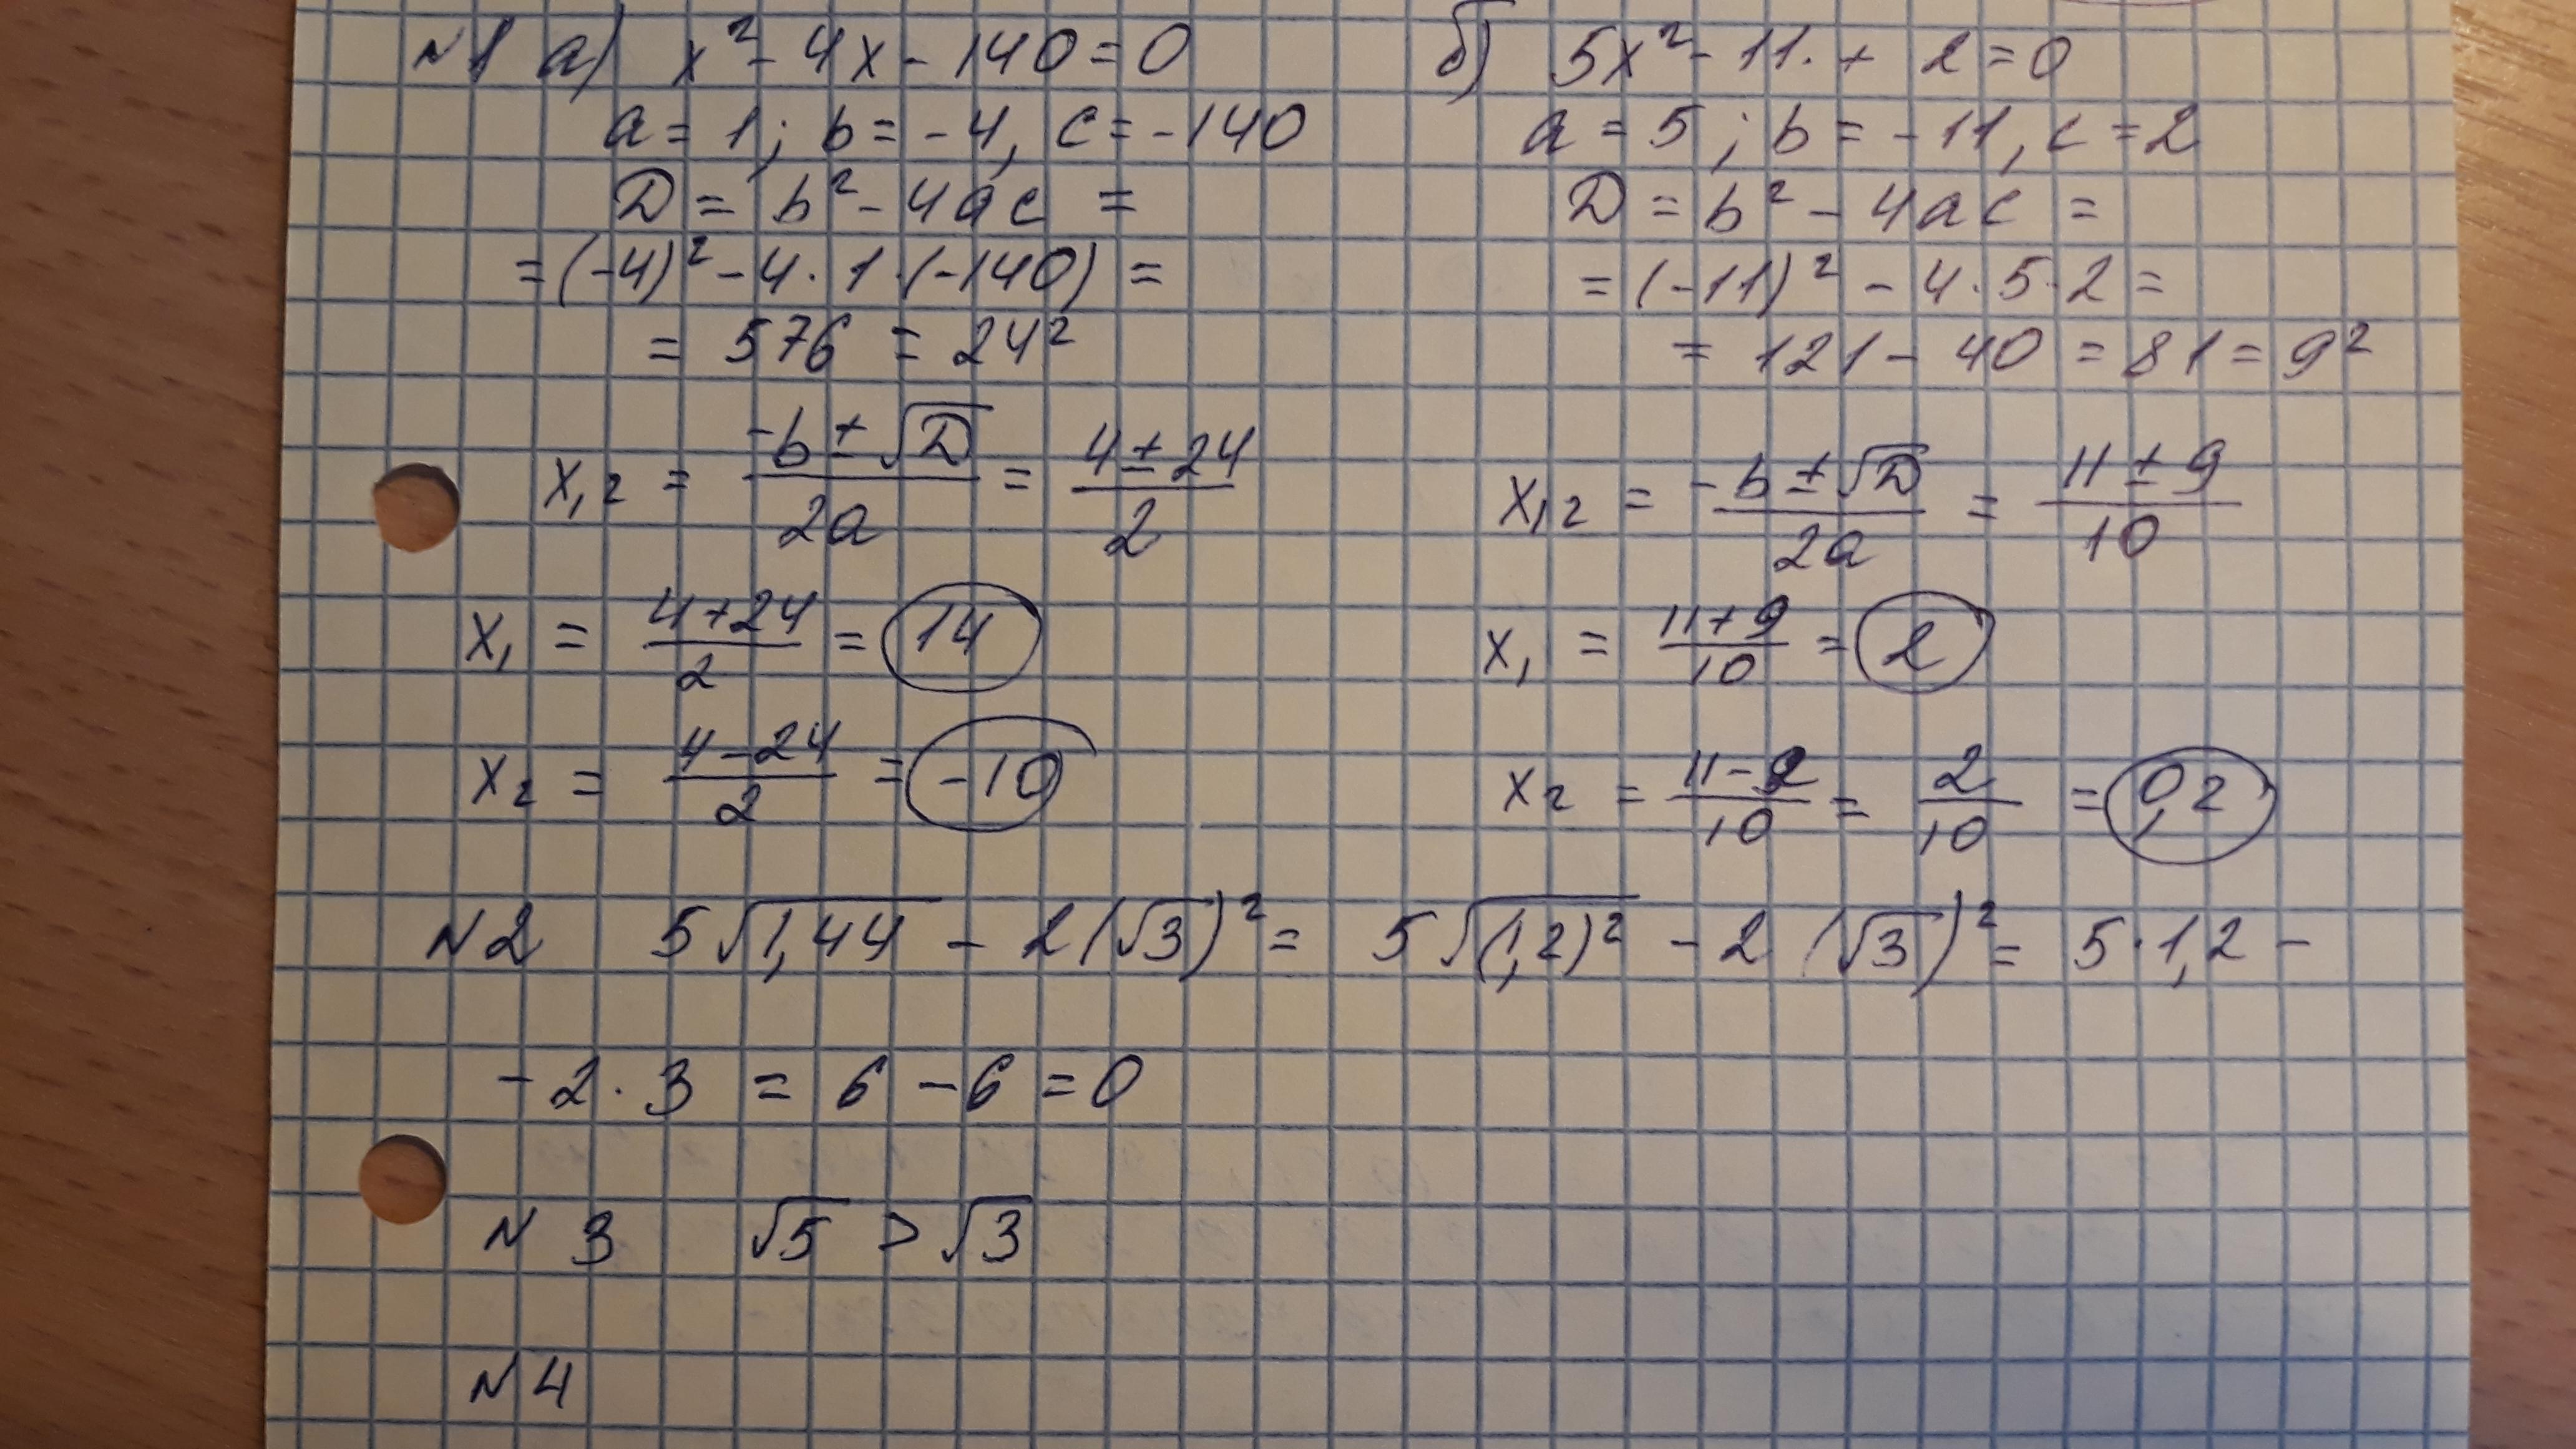 N1 а) x² - 4x - 140 = 0
a = 1; b = -4, c = -140
D = b² - 4ac =
= (-4)² - 4 · 1 · (-140) =
= 576 = 24²
x₁,₂ = (-b ± √D)/(2a) = (4 ± 24)/2
x₁ = (4+24)/2 = 14
x₂ = (4-24)/2 = -10
б) 5x² - 11· + 2 = 0
a = 5; b = -11, c = 2
D = b² - 4ac =
= (-11)² - 4 · 5 · 2 =
= 121 - 40 = 81 = 9²
x₁,₂ = (-b ± √D)/(2a) = (11 ± 9)/10
x₁ = (11+9)/10 = 2
x₂ = (11-9)/10 = 2/10 = 0,2
N2 5√1,44 - 2(√3)² = 5√(1,2)² - 2(√3)² = 5·1,2 -
- 2 · 3 = 6 - 6 = 0
N 3 √5 > √3
N4